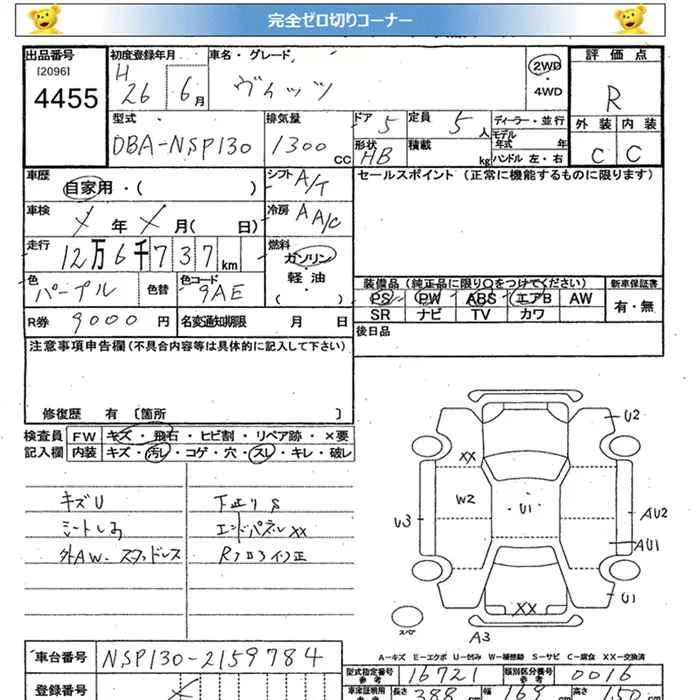 完全ゼロ切りコーナー
出品番号
[2096]
4455
初度登録年月
H 26 6月
車名・グレード
ヴィッツ
2WD
・
4WD
評価点
R
外装 内装
C C
型式
DBA-NSP130
排気量
1300 cc
ドア 5
形状 HB
定員 5 人
積載 kg
ディーラー・並行
モデル年式 年
ハンドル 左・右
車歴
自家用・( )
シフト A/T
セールスポイント (正常に機能するものに限ります)
車検
メ 年 メ 月( 日)
冷房 AA/C
走行
12万6千737km
燃料
ガソリン
・
軽油
( )
色
パープル
色替
色コード
9AE
装備品 (純正品に限り○をつけてください)
PS PW ABS エアB AW
SR ナビ TV カワ
新車保証書
有・無
R券 9000 円
名変通知期限 月 日
後日品
注意事項申告欄 (不具合内容等は具体的に記入して下さい)
修復歴 有 〔箇所 〕
検査員 FW キズ・飛石・ヒビ割・リペア跡・×要
記入欄 内装 キズ・汚レ・コゲ・穴・スレ・キレ・破レ
キズU
シートしみ
外AW-スタッドレス
下正りS
エンドパネルXX
Rフロア
U2
XX
W2
U1
U3
AU2
AU1
U1
XX
A3
スペア
A-キズ E-エクボ U-凹み W-補修跡 S-サビ C-腐食 XX-交換済
車台番号 NSP130-2159784
型式指定番号 16721
類別区分番号 0016
登録番号
車庫証明用参考 長さ 388 cm 幅 169 cm 高さ 150 cm